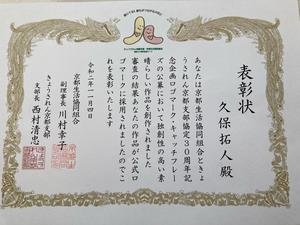 表彰状
久保拓人殿
あなたは京都生活協同組合ときょ
うされん京都支部協定30周年記
念企画ロゴマーク・キャッチフレー
ズの公募において独創性の高い素
晴らしい作品を創作されました
審査の結果あなたの作品が公式ロ
ゴマークに採用されましたのでこ
れを表彰いたします
令和二年一一月四日
京都生活協同組合
副理事長 川村幸子
きょうされん京都支部
支部長 西村清忠